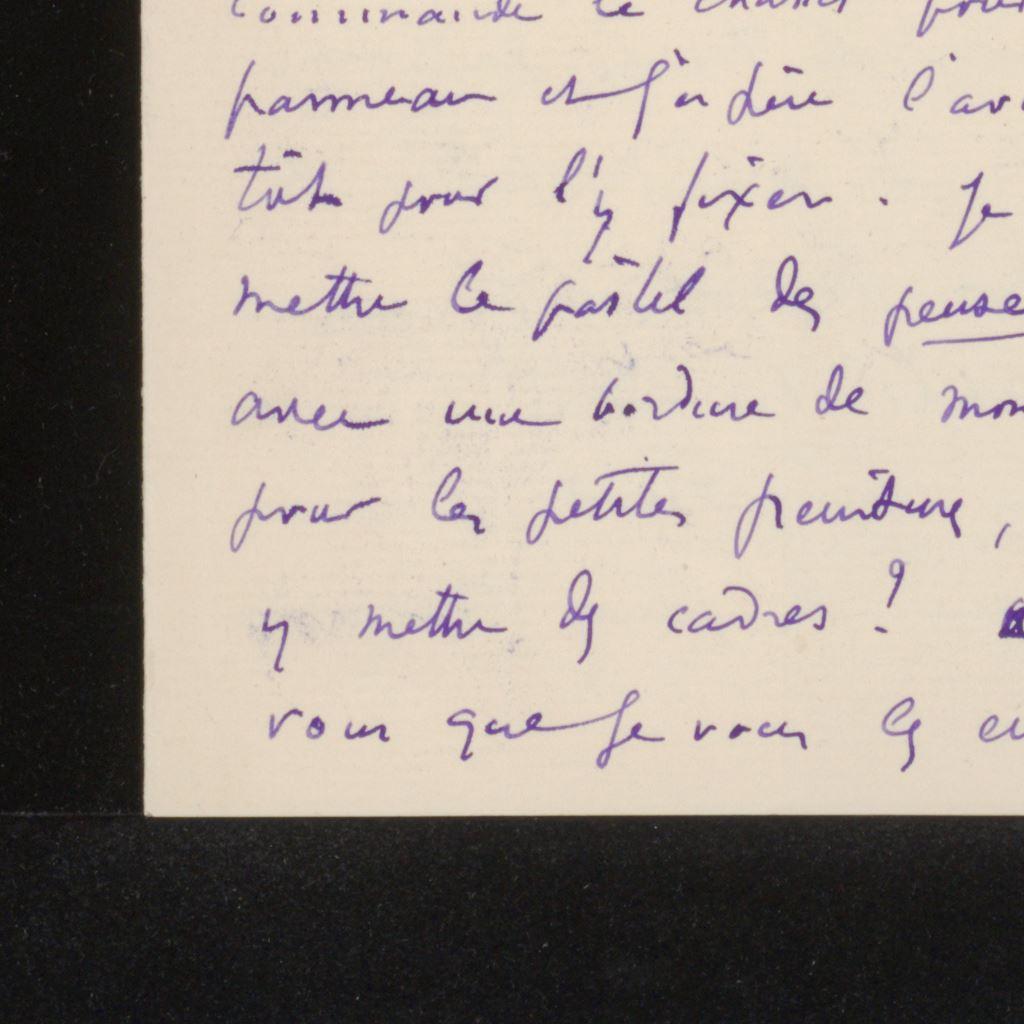 commande le chassis pour
panneau et j'espère l'avo
tôt pour l'y fixer. Je
mettre le pastel des pense
avec une bordure de mon
pour les petites peintures,
y mettre des cadres ?
vous que je vous les en